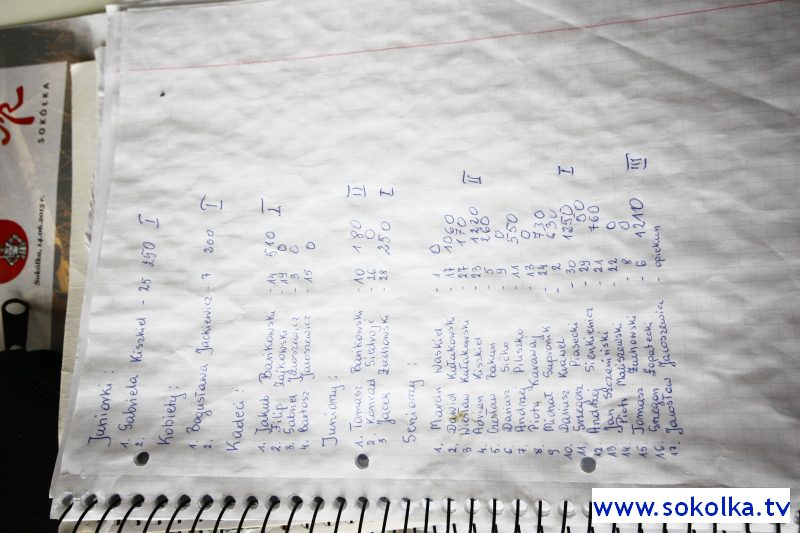 Juniorki:
1. Gabriela Kiszkiel - 25 250 I
2.
Kobiety:
1. Bogusława Jackiewicz - 7 200 I
2.
Kadeci:
1. Jakub Bańkowski - 14 510 I
2. Filip - 19 0
3. Gabriel Jaroszewicz - 3 0
4. Bartosz Jaroszewicz - 15 0
Juniorzy:
1. Tomasz Bańkowski - 10 180 II
2 Konrad Siedruć - 26 0
3 Jacek Żuchowski - 28 250 I
Seniorzy:
1. Marcin Waskiel - 1 0
2. Dawid Kułakowski - 17 1060
3 Wiesław Kułakowski - 27 170
4. Adrian Kiszkiel - 23 1220 II
5 Czesław - 5 260
6 Dariusz - 9 0
7. Andrzej - 11 550
8. Piotr - 13 0
9 Michał - 24 730
10. Dariusz - 2 630
11 Grzegorz Piasecki - 30 1250 I
12 Andrzej Sienkiewicz - 29 50
13 Jan - 21 760
14. Piotr Maliszewski - 22 0
15 Tomasz Żuchowski - 8 0
16. Grzegorz - 6 1210 III
17. Jarosław Jaroszewicz - opiekun
SOKÓŁKA
Sokółka, 14.06.2015 r.
www.sokolka.tv